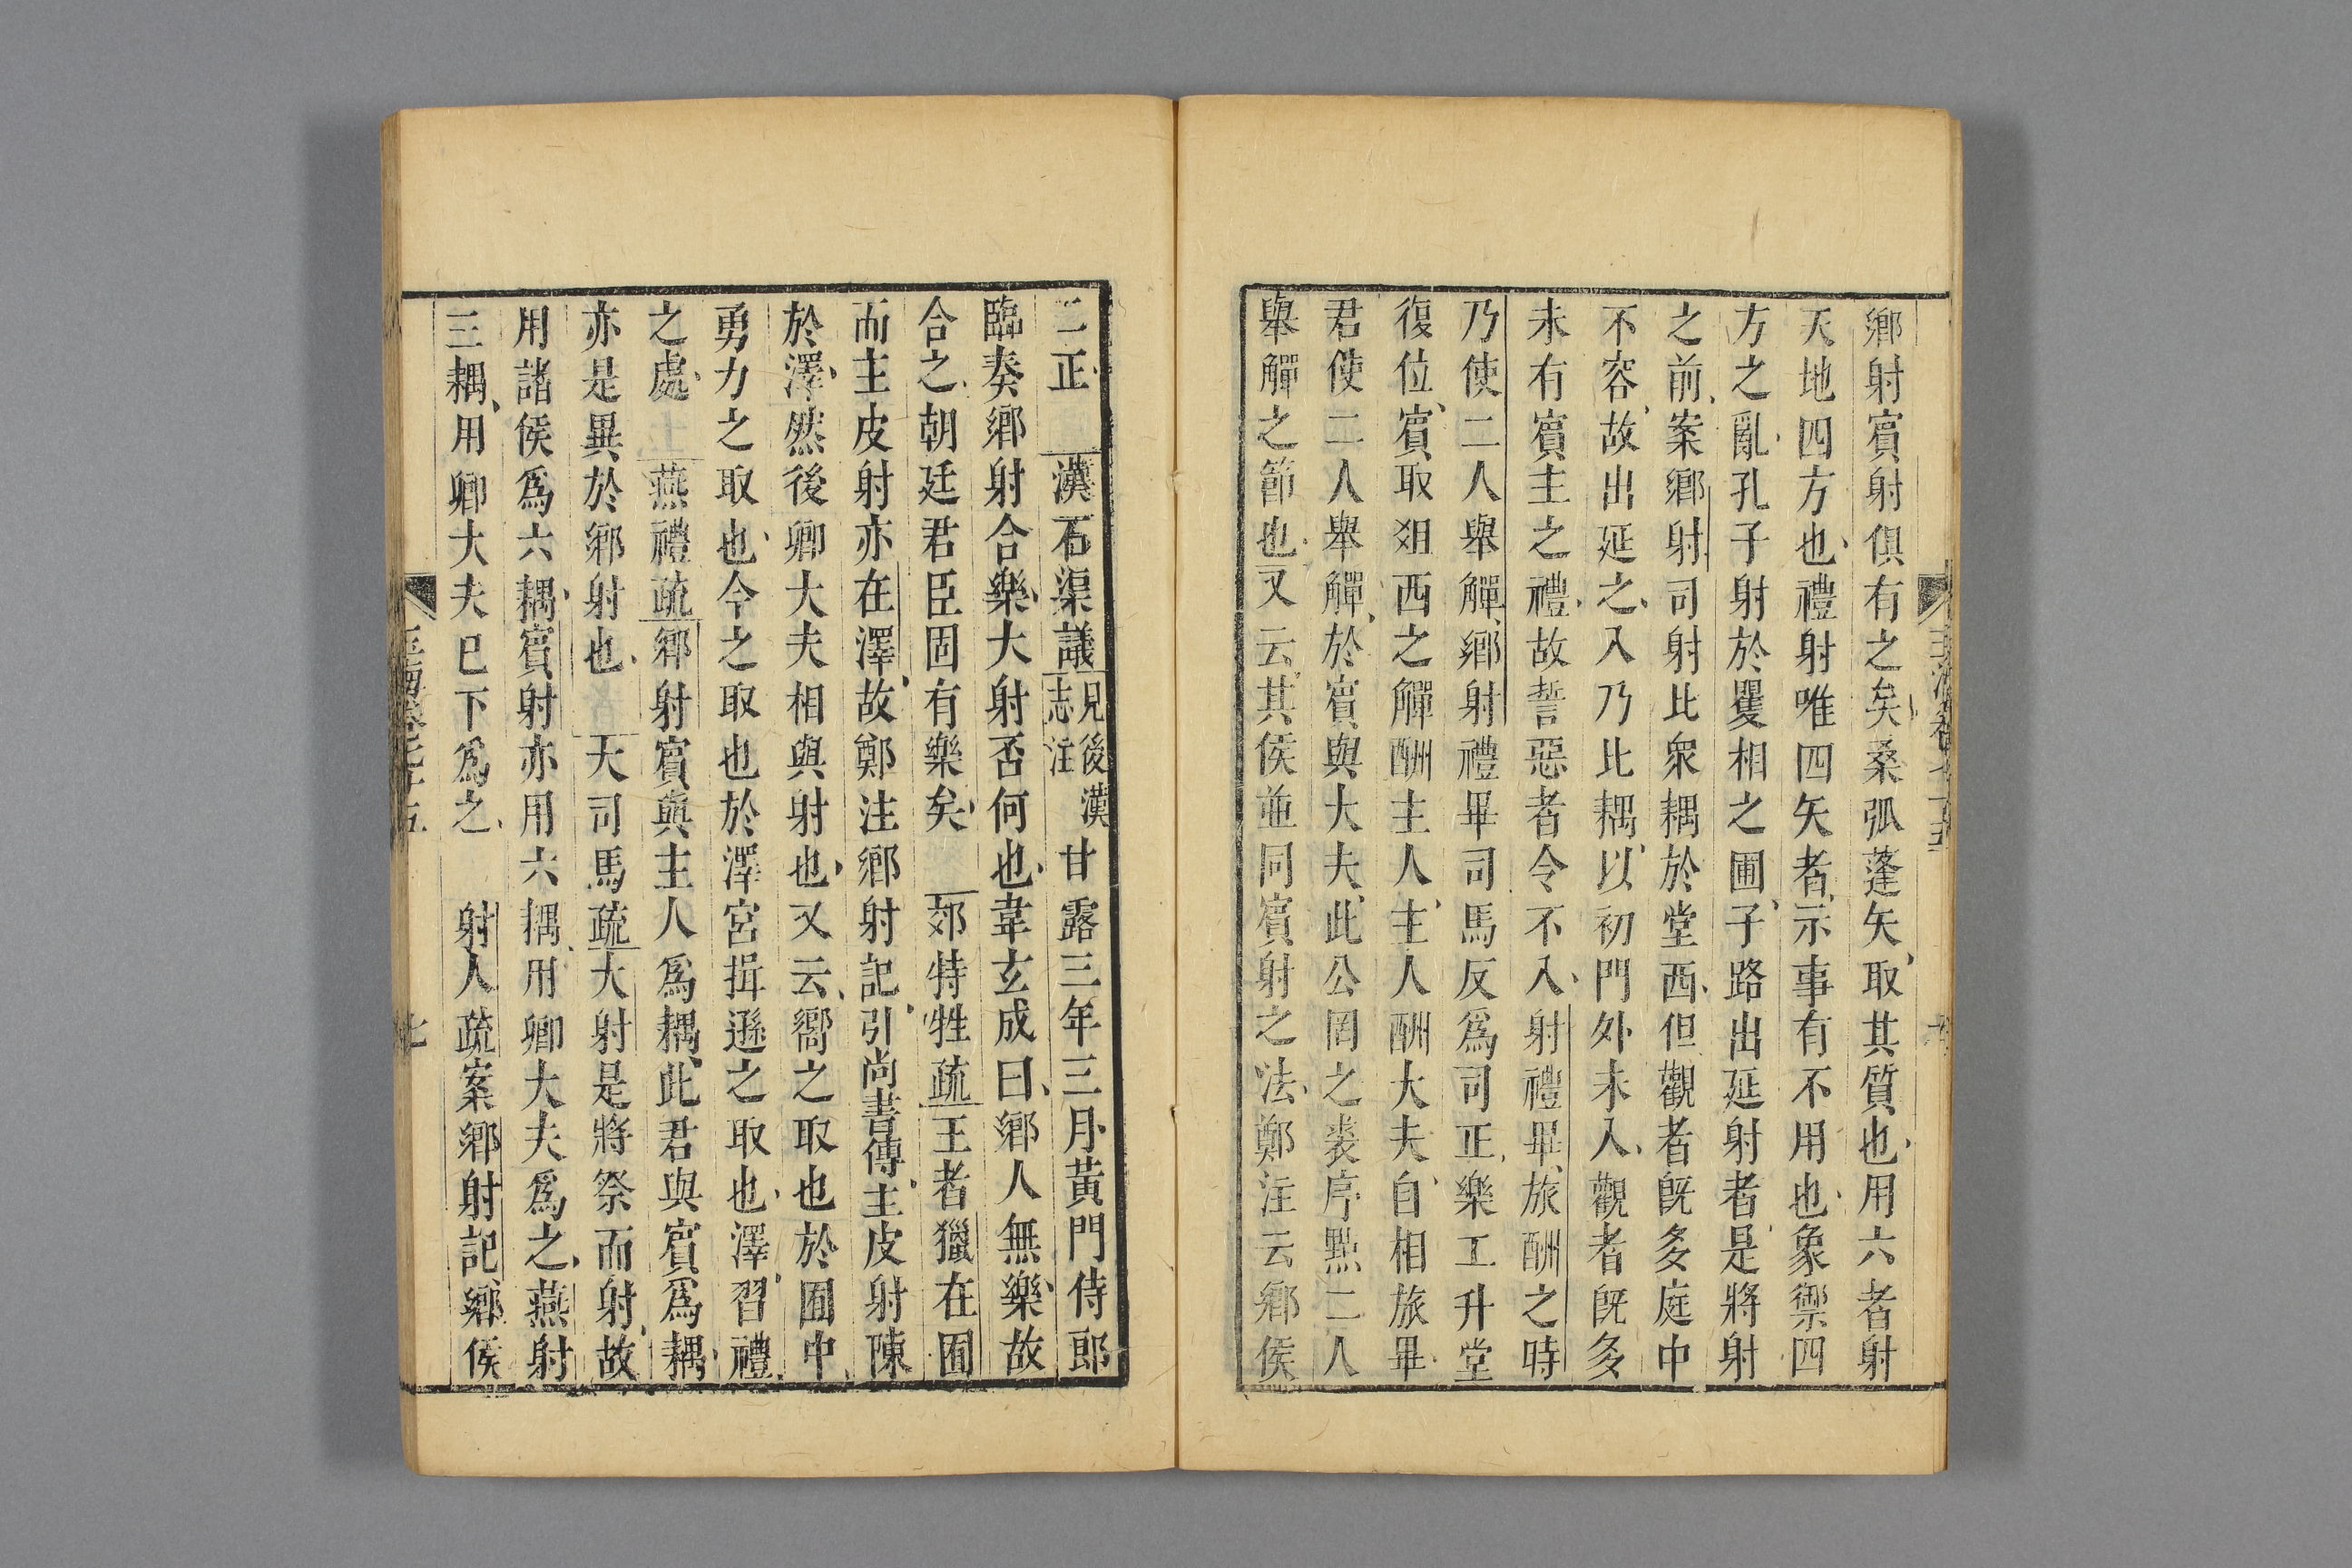 鄉射賓射俱有之矣桑弧蓬矢取其質也用六者射
天地四方也禮射唯四矢者示事有不用也象禦四
方之亂孔子射於矍相之圃子路出延射者是將射
之前案鄉射司射比衆耦於堂西但觀者旣多庭中
不容故出延之入乃比耦以初門外未入觀者旣多
未有賓主之禮故誓惡者令不入射禮畢旅酬之時
乃使二人舉觶鄉射禮畢司馬反爲司正樂工升堂
復位賓取俎西之觶酬主人主人酬大夫自相旅畢
君使二人舉觶於賓與大夫此公罔之裘序點二人
舉觶之節也又云其侯並同賓射之法鄭注云鄉侯
二正 漢石渠議見後漢志注甘露三年三月黃門侍郎
臨奏鄉射合樂大射否何也韋玄成曰鄉人無樂故
合之朝廷君臣固有樂矣 郊特牲疏王者獵在囿
而主皮射亦在澤故鄭注鄉射記引尚書傳主皮射陳
於澤然後卿大夫相與射也又云嚮之取也於囿中
勇力之取也今之取也於澤宮揖遜之取也澤習禮
之處 燕禮疏鄉射賓與主人爲耦此君與賓爲耦
亦是異於鄉射也 大司馬疏大射是將祭而射故
用諸侯爲六耦賓射亦用六耦用卿大夫爲之燕射
三耦用卿大夫已下爲之 射人疏案鄉射記鄉侯